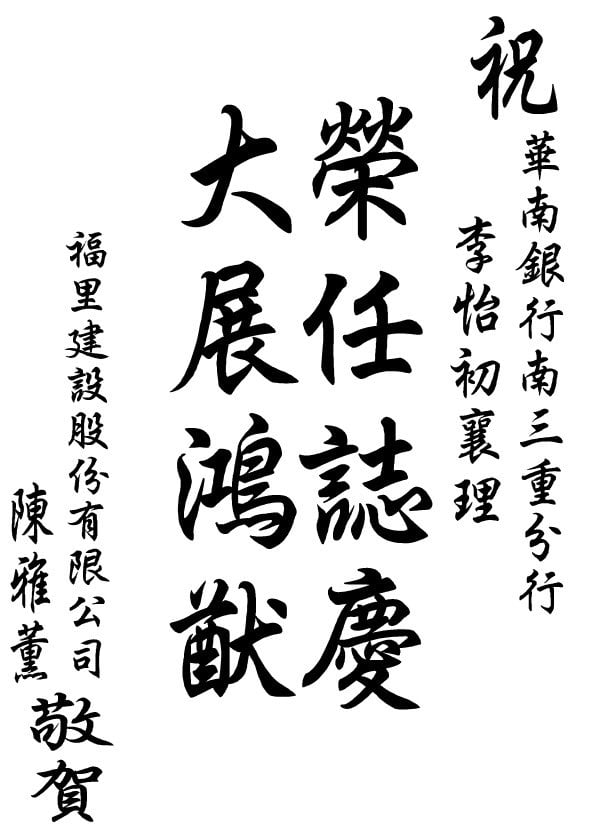 祝
華南銀行南三重分行
李怡初襄理
榮任誌慶
大展鴻猷
福里建設股份有限公司
陳雅薰
敬賀